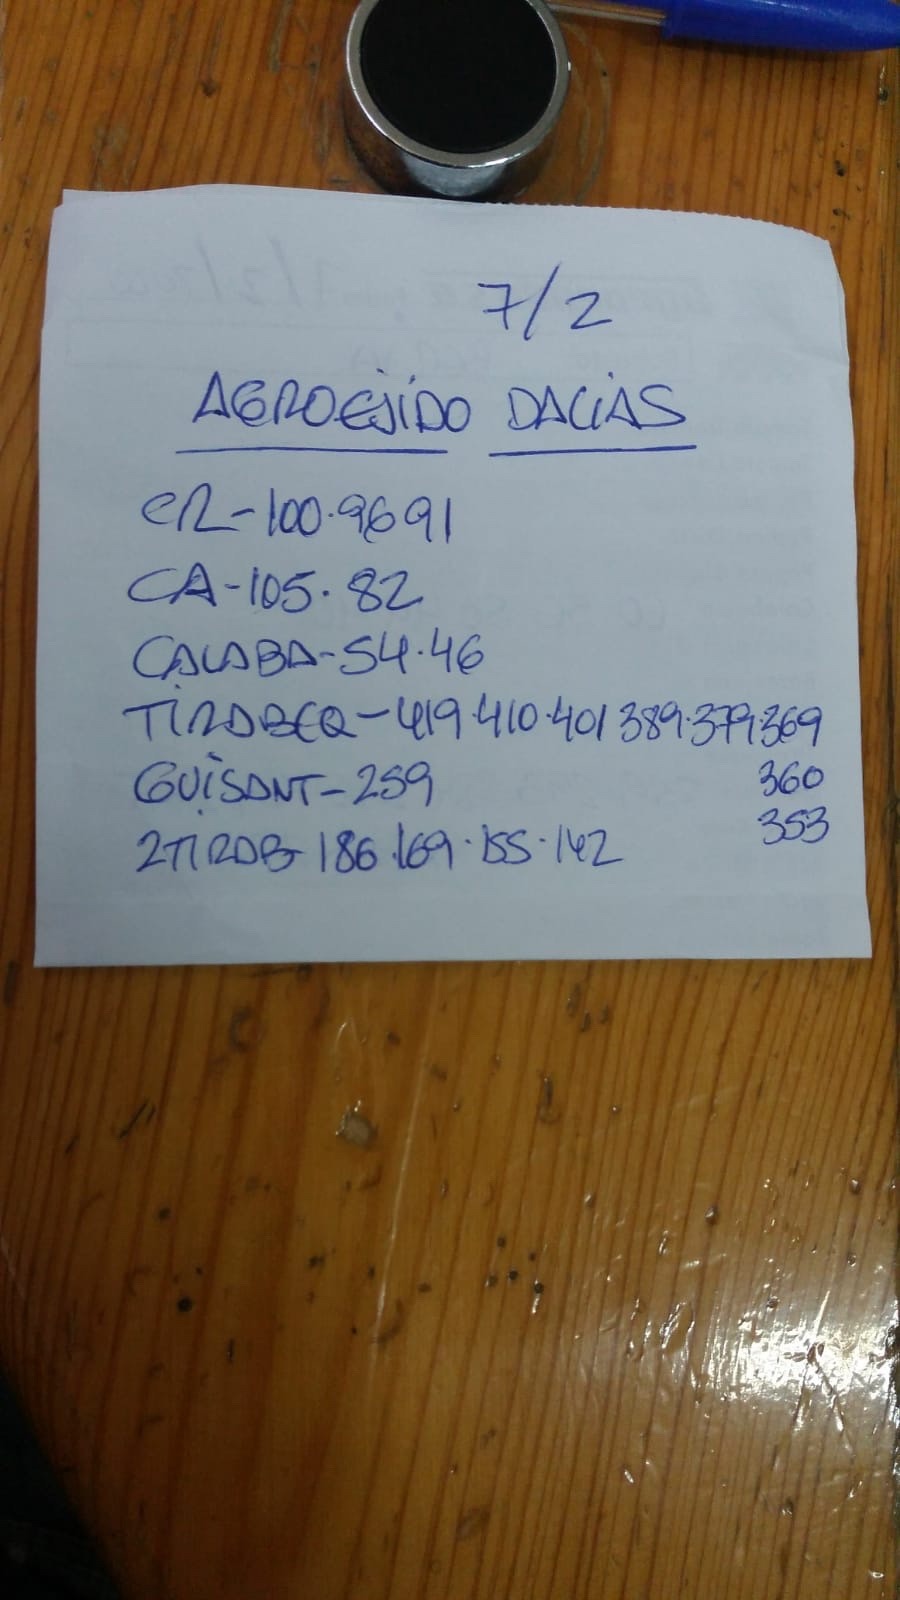 7/2
AGROEJIDO DALIAS
CR-100.96 91
CA-105.82
CALABA-54.46
TIRABEQ-419.410.401 389.379.369
360
GUISANT-259
353
2TIRAB-186.169.155.142